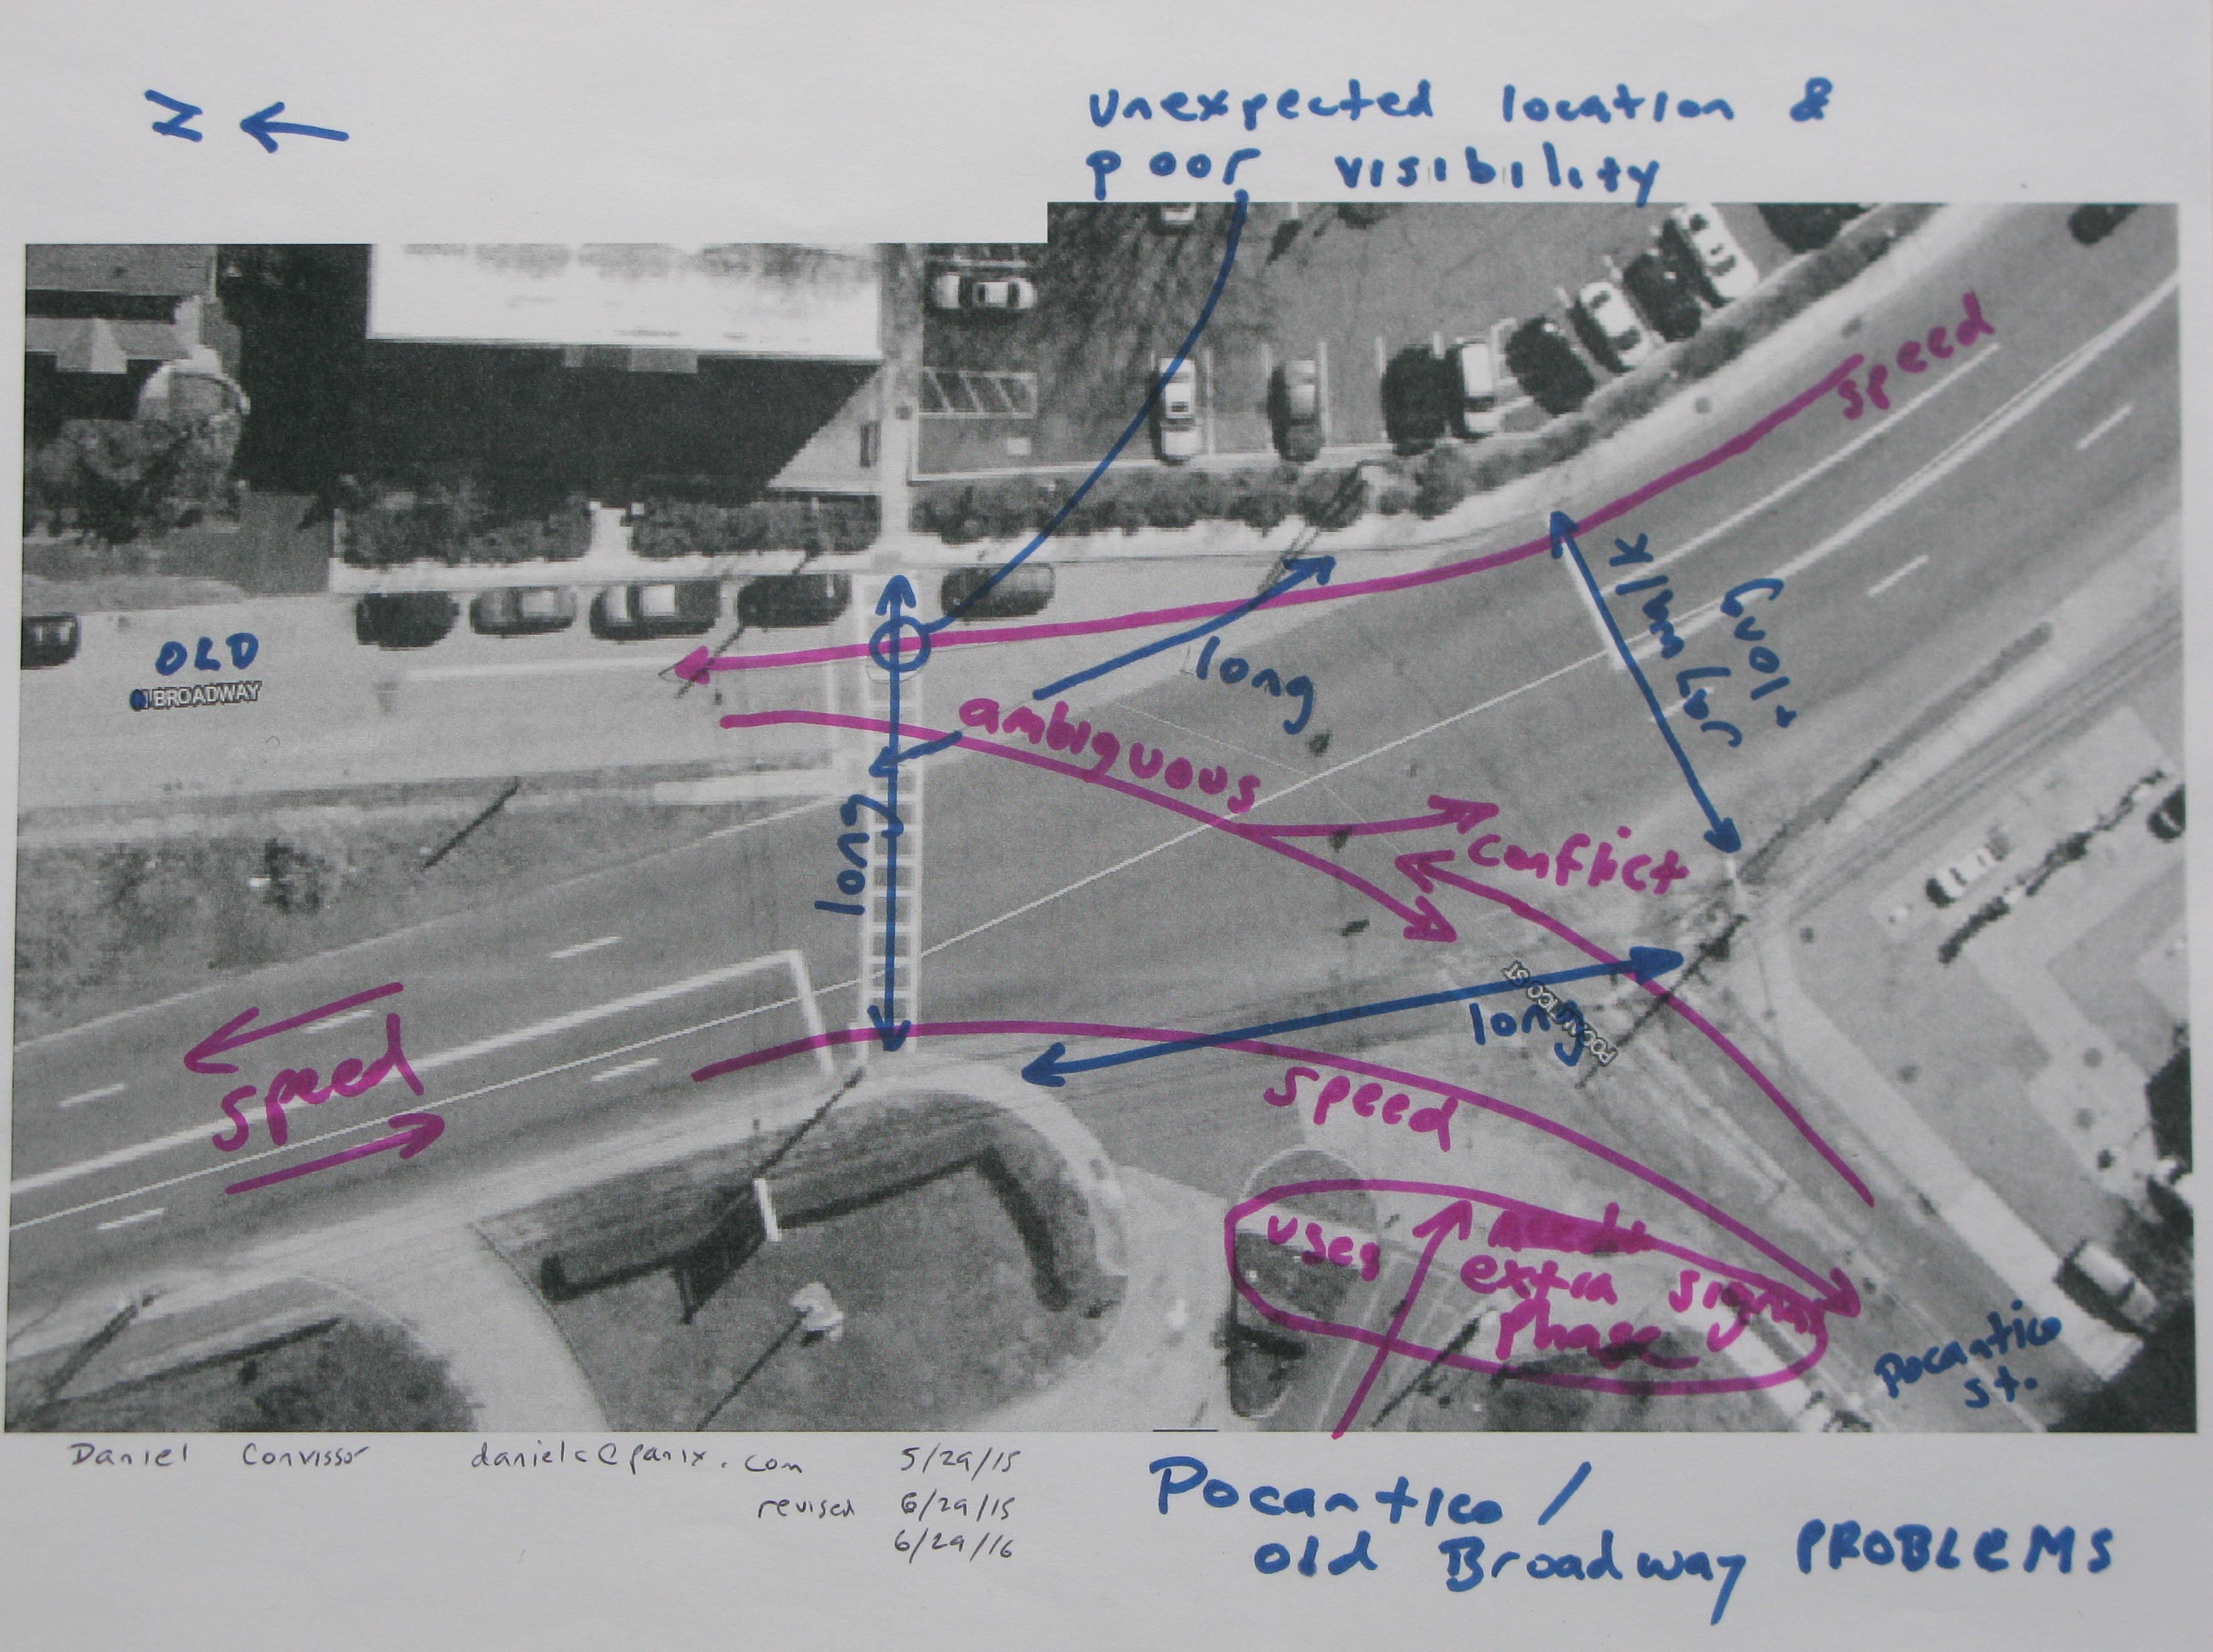 Z
unexpected location &
poor visibility
speed
jaywalk
+ long
OLD
N BROADWAY
long
ambiguous
long
conflict
POCANTICO ST
long
speed
speed
uses
extra signal
phase
Pocantico
st.
Daniel Convissor danielc@panix.com 5/29/15
revised 6/29/15
6/29/16
Pocantico /
old Broadway PROBLEMS